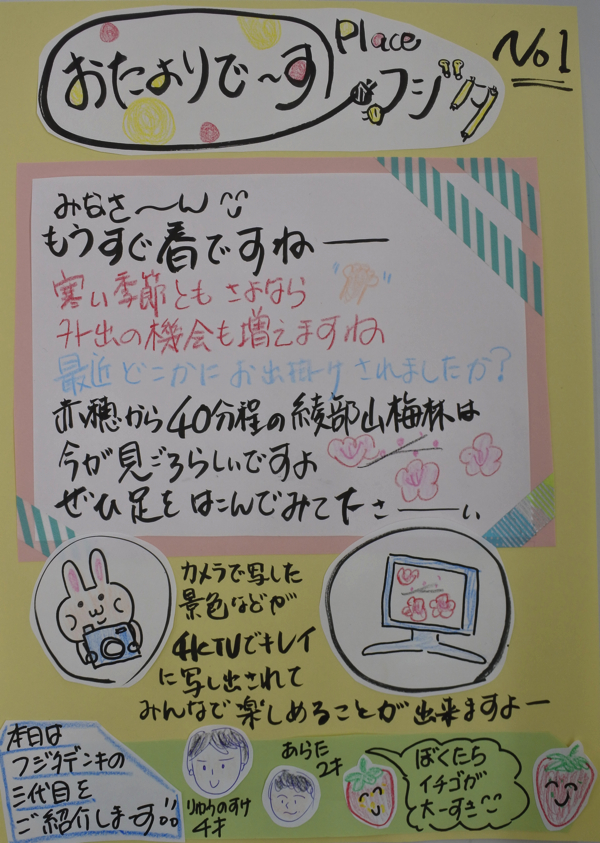 おたよりで〜す
Place フジタ
No1
みなさ〜ん
もうすぐ春ですね―
寒い季節ともさよなら
外出の機会も増えますね
最近どこかにお出掛けされましたか?
赤穂から40分程の綾部山梅林は
今が見ごろらしいですよ
ぜひ足をはこんでみて下さ――い
カメラで写した
景色などが
4KTVでキレイ
に写し出されて
みんなで楽しめることが出来ますよー
本日は
フジタデンキの
三代目を
ご紹介します!!
りゅうのすけ
4才
あらた
2才
ぼくたち
イチゴが
大ーすき